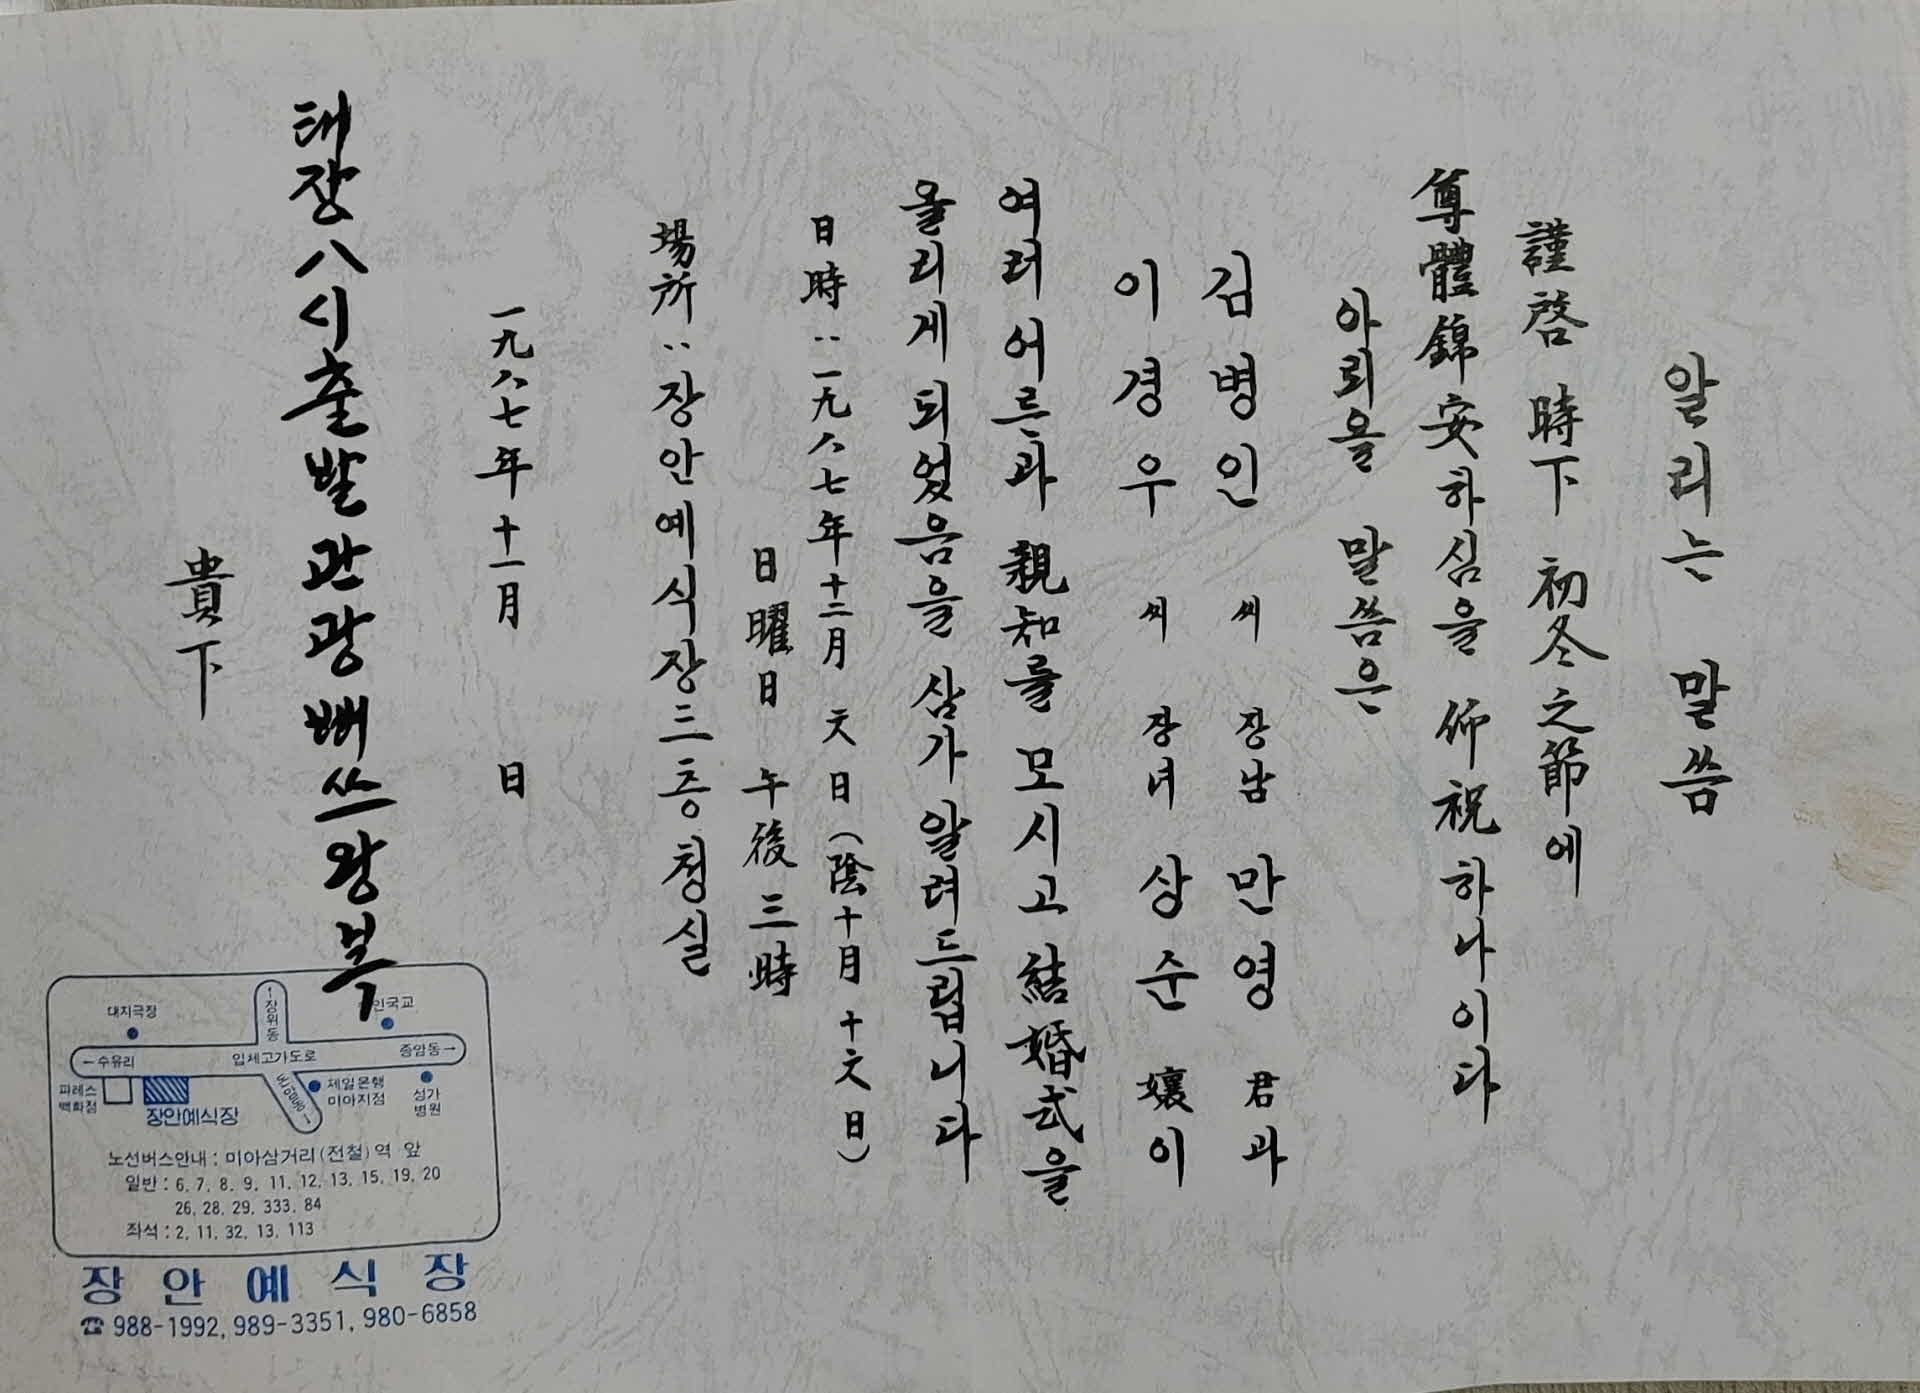 알리는 말씀
謹啓 時下 初冬之節에
尊體錦安하심을 仰祝하나이다
아뢰올 말씀은
김병인 씨 장남 만영 君과
이경우 씨 장녀 상순 孃이
여러 어른과 親知를 모시고 結婚式을
올리게 되었음을 삼가 알려드립니다
日時：一九八七年十二月 六日(陰十月 十六日)
日曜日 午後三時
場所：장안예식장三층청실
一九八七年十一月 日
태장八시출발관광뻐쓰왕복
貴下
대지극장
↑장위동
인국교
←수유리
입체고가도로
종암동→
파레스
백화점
장안예식장
돈암동→
제일은행
미아지점
성가
병원
노선버스안내 : 미아삼거리(전철)역 앞
일반 : 6, 7, 8, 9, 11, 12, 13, 15, 19, 20
26, 28, 29, 333, 84
좌석 : 2, 11, 32, 13, 113
장안예식장
☎ 988-1992, 989-3351, 980-6858